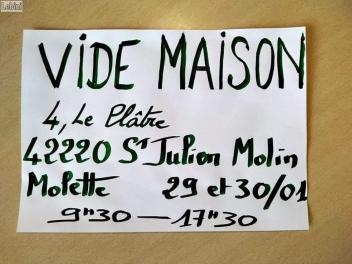 Lebini
VIDE MAISON
4, Le Plâtre
42220 St Julien Molin
Molette 29 et 30/01
9h30 — 17h30